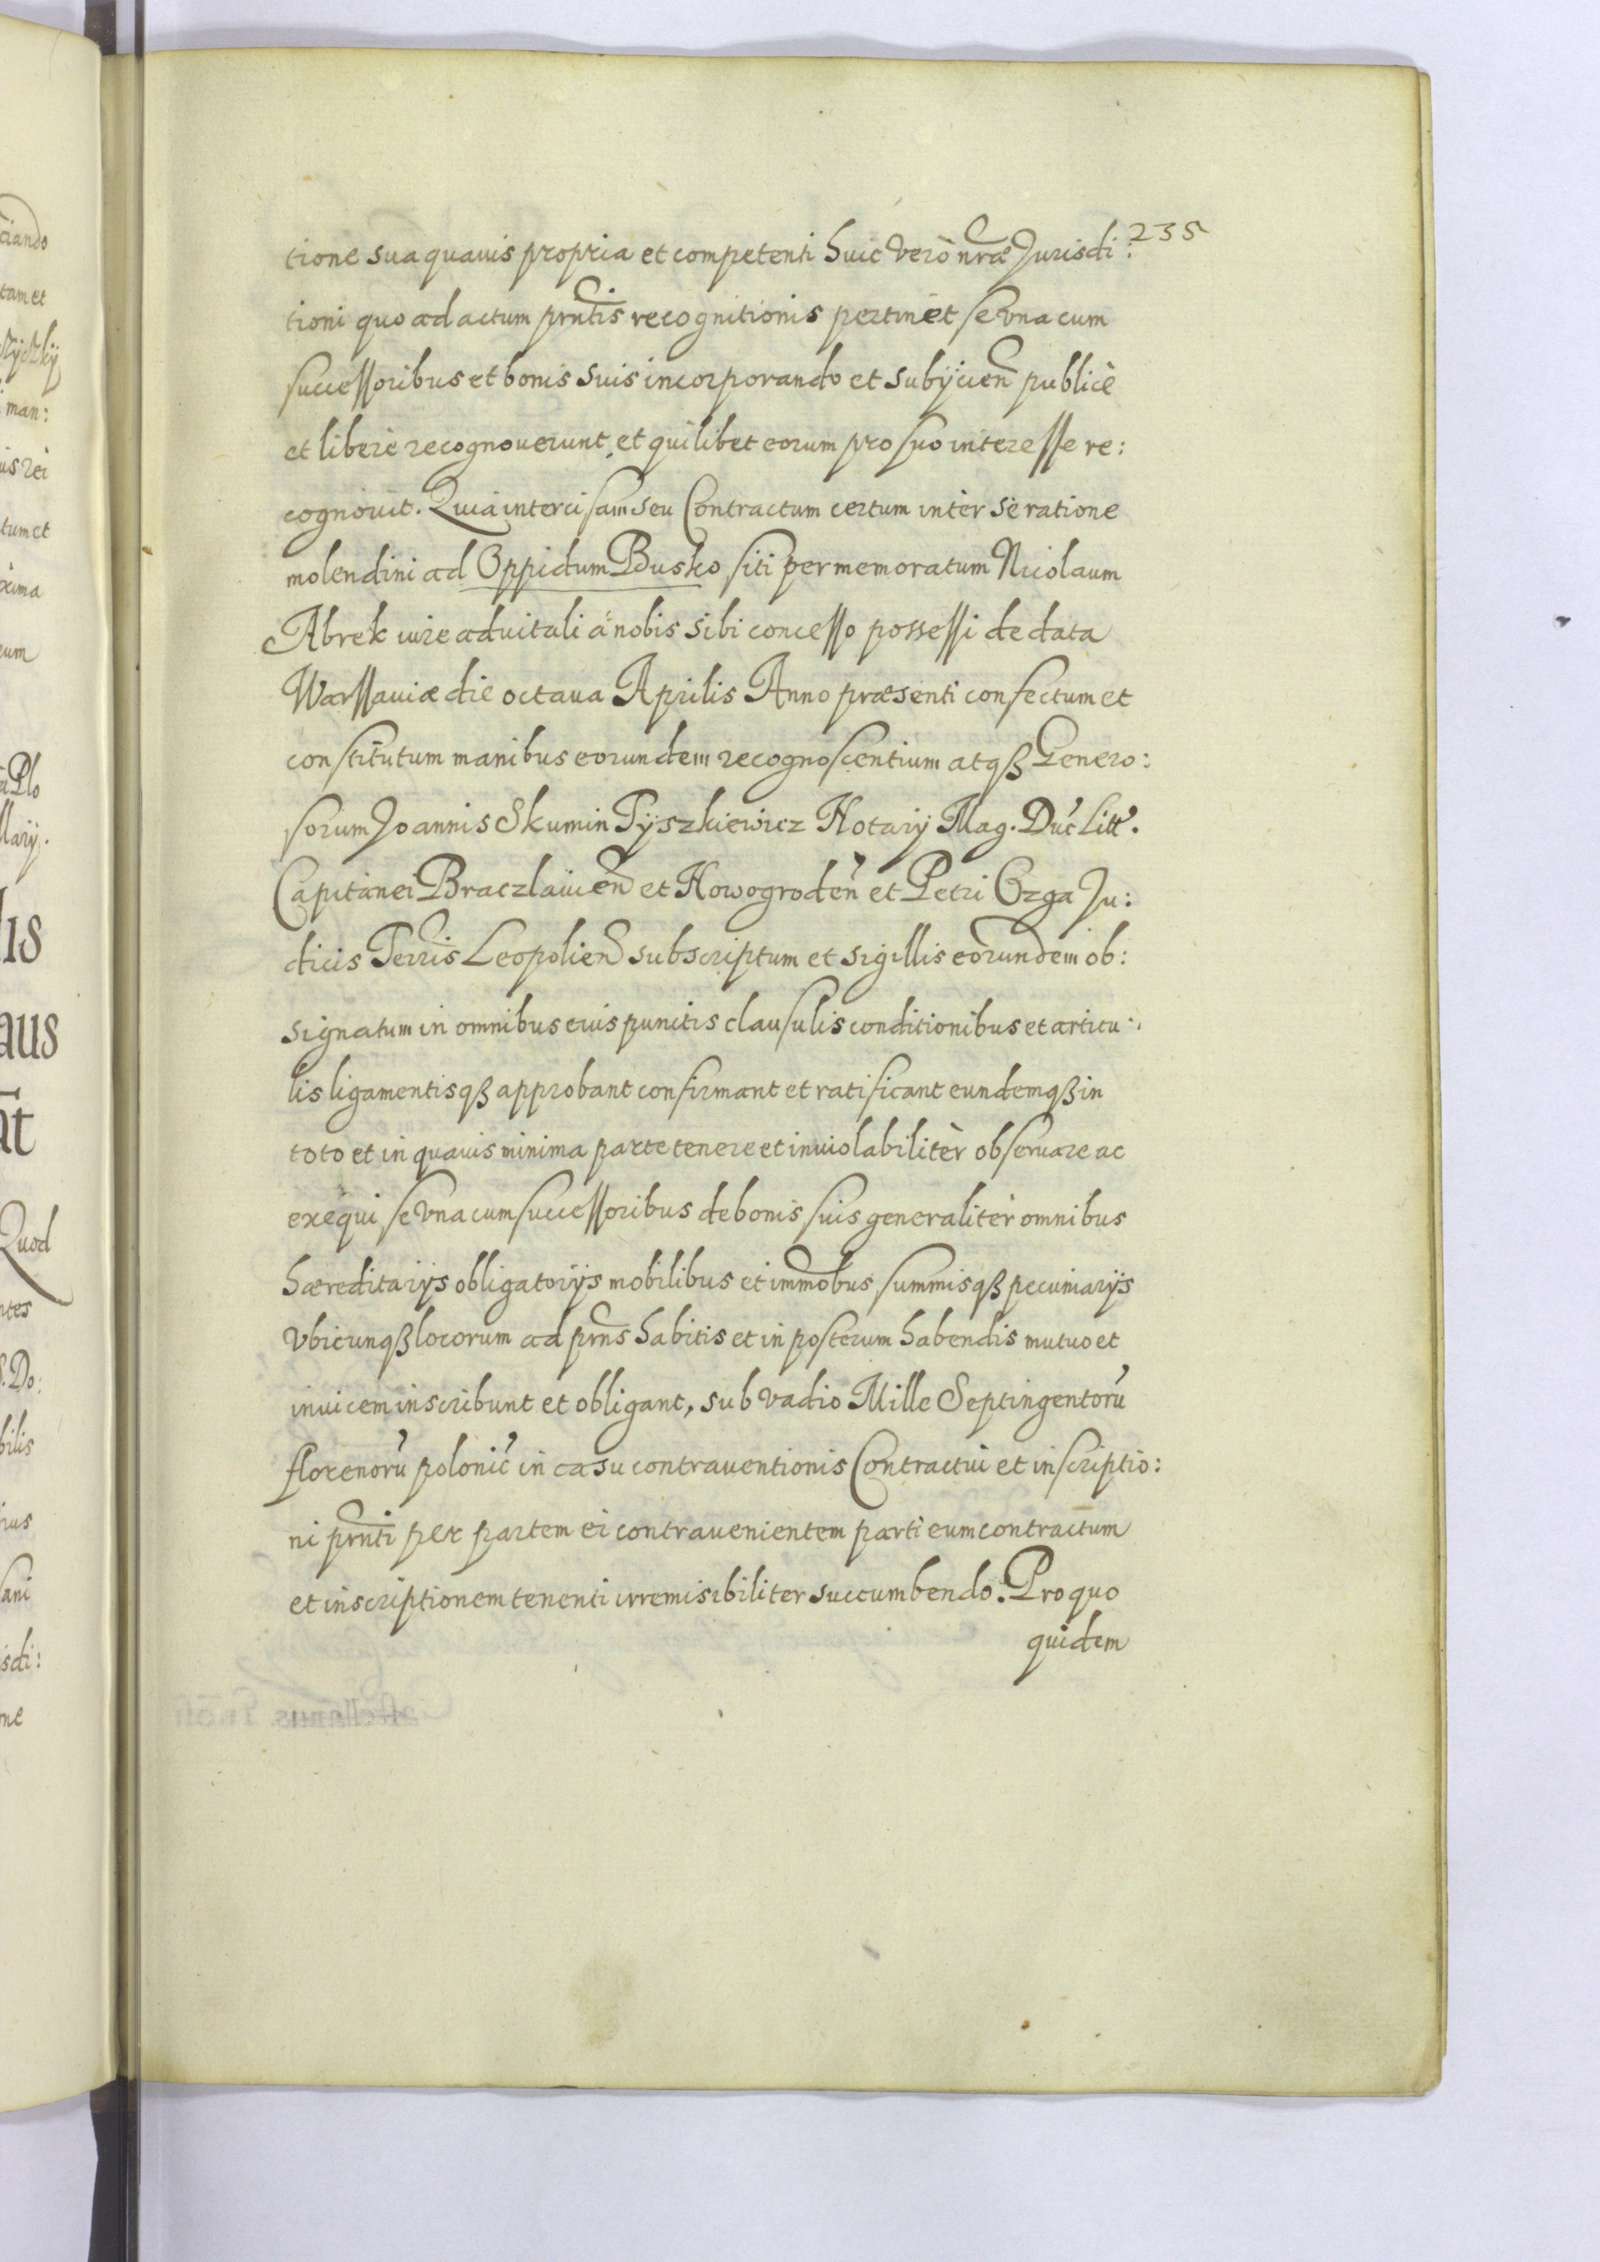 235
tione sua quauis propria et competenti huic verò nrae Jurisdi:
tioni quo ad actum prntis recognitionis pertinet se vna cum
successoribus et bonis suis incorporando et subijcien publicè
et liberè recognouerunt, et quilibet eorum pro suo interesse re:
cognouit. Quia intercisam seu Contractum certum inter se ratione
molendini ad Oppidum Busko siti per memoratum Nicolaum
Abrek iure aduitali á nobis sibi concesso possessi de data
Warssauiae die octaua Aprilis Anno praesenti confectum et
constitutum manibus eorundem recognoscentium atqß Genero:
sorum Joannis Skumin Tyszkiewicz Notarij Mag. Duc Litt.
Capitanei Braczlauien et Nowogroden et Petri Ozga Ju:
dicis Terris Leopolien subscriptum et sigillis eorundem ob:
signatum in omnibus eius punctis clausulis conditionibus et articu:
lis ligamentisqß approbant confirmant et ratificant eundemqß in
toto et in quauis minima parte tenere et inuiolabilitèr obseruare ac
exequi se vna cum successoribus de bonis suis generaliter omnibus
haereditarijs obligatorijs mobilibus et immobus, summisqß pecuniarijs
vbicunqß locorum ad prns habitis et in posterum habendis mutuo et
inuicem inscribunt et obligant, sub vadio Mille Septingentorū
florenorū polonic in casu contrauentionis Contractui et inscriptio:
ni prnti per partem ei contrauenientem parti eum contractum
et inscriptionem tenenti irremisibiliter succumbendo. Pro quo
quidem